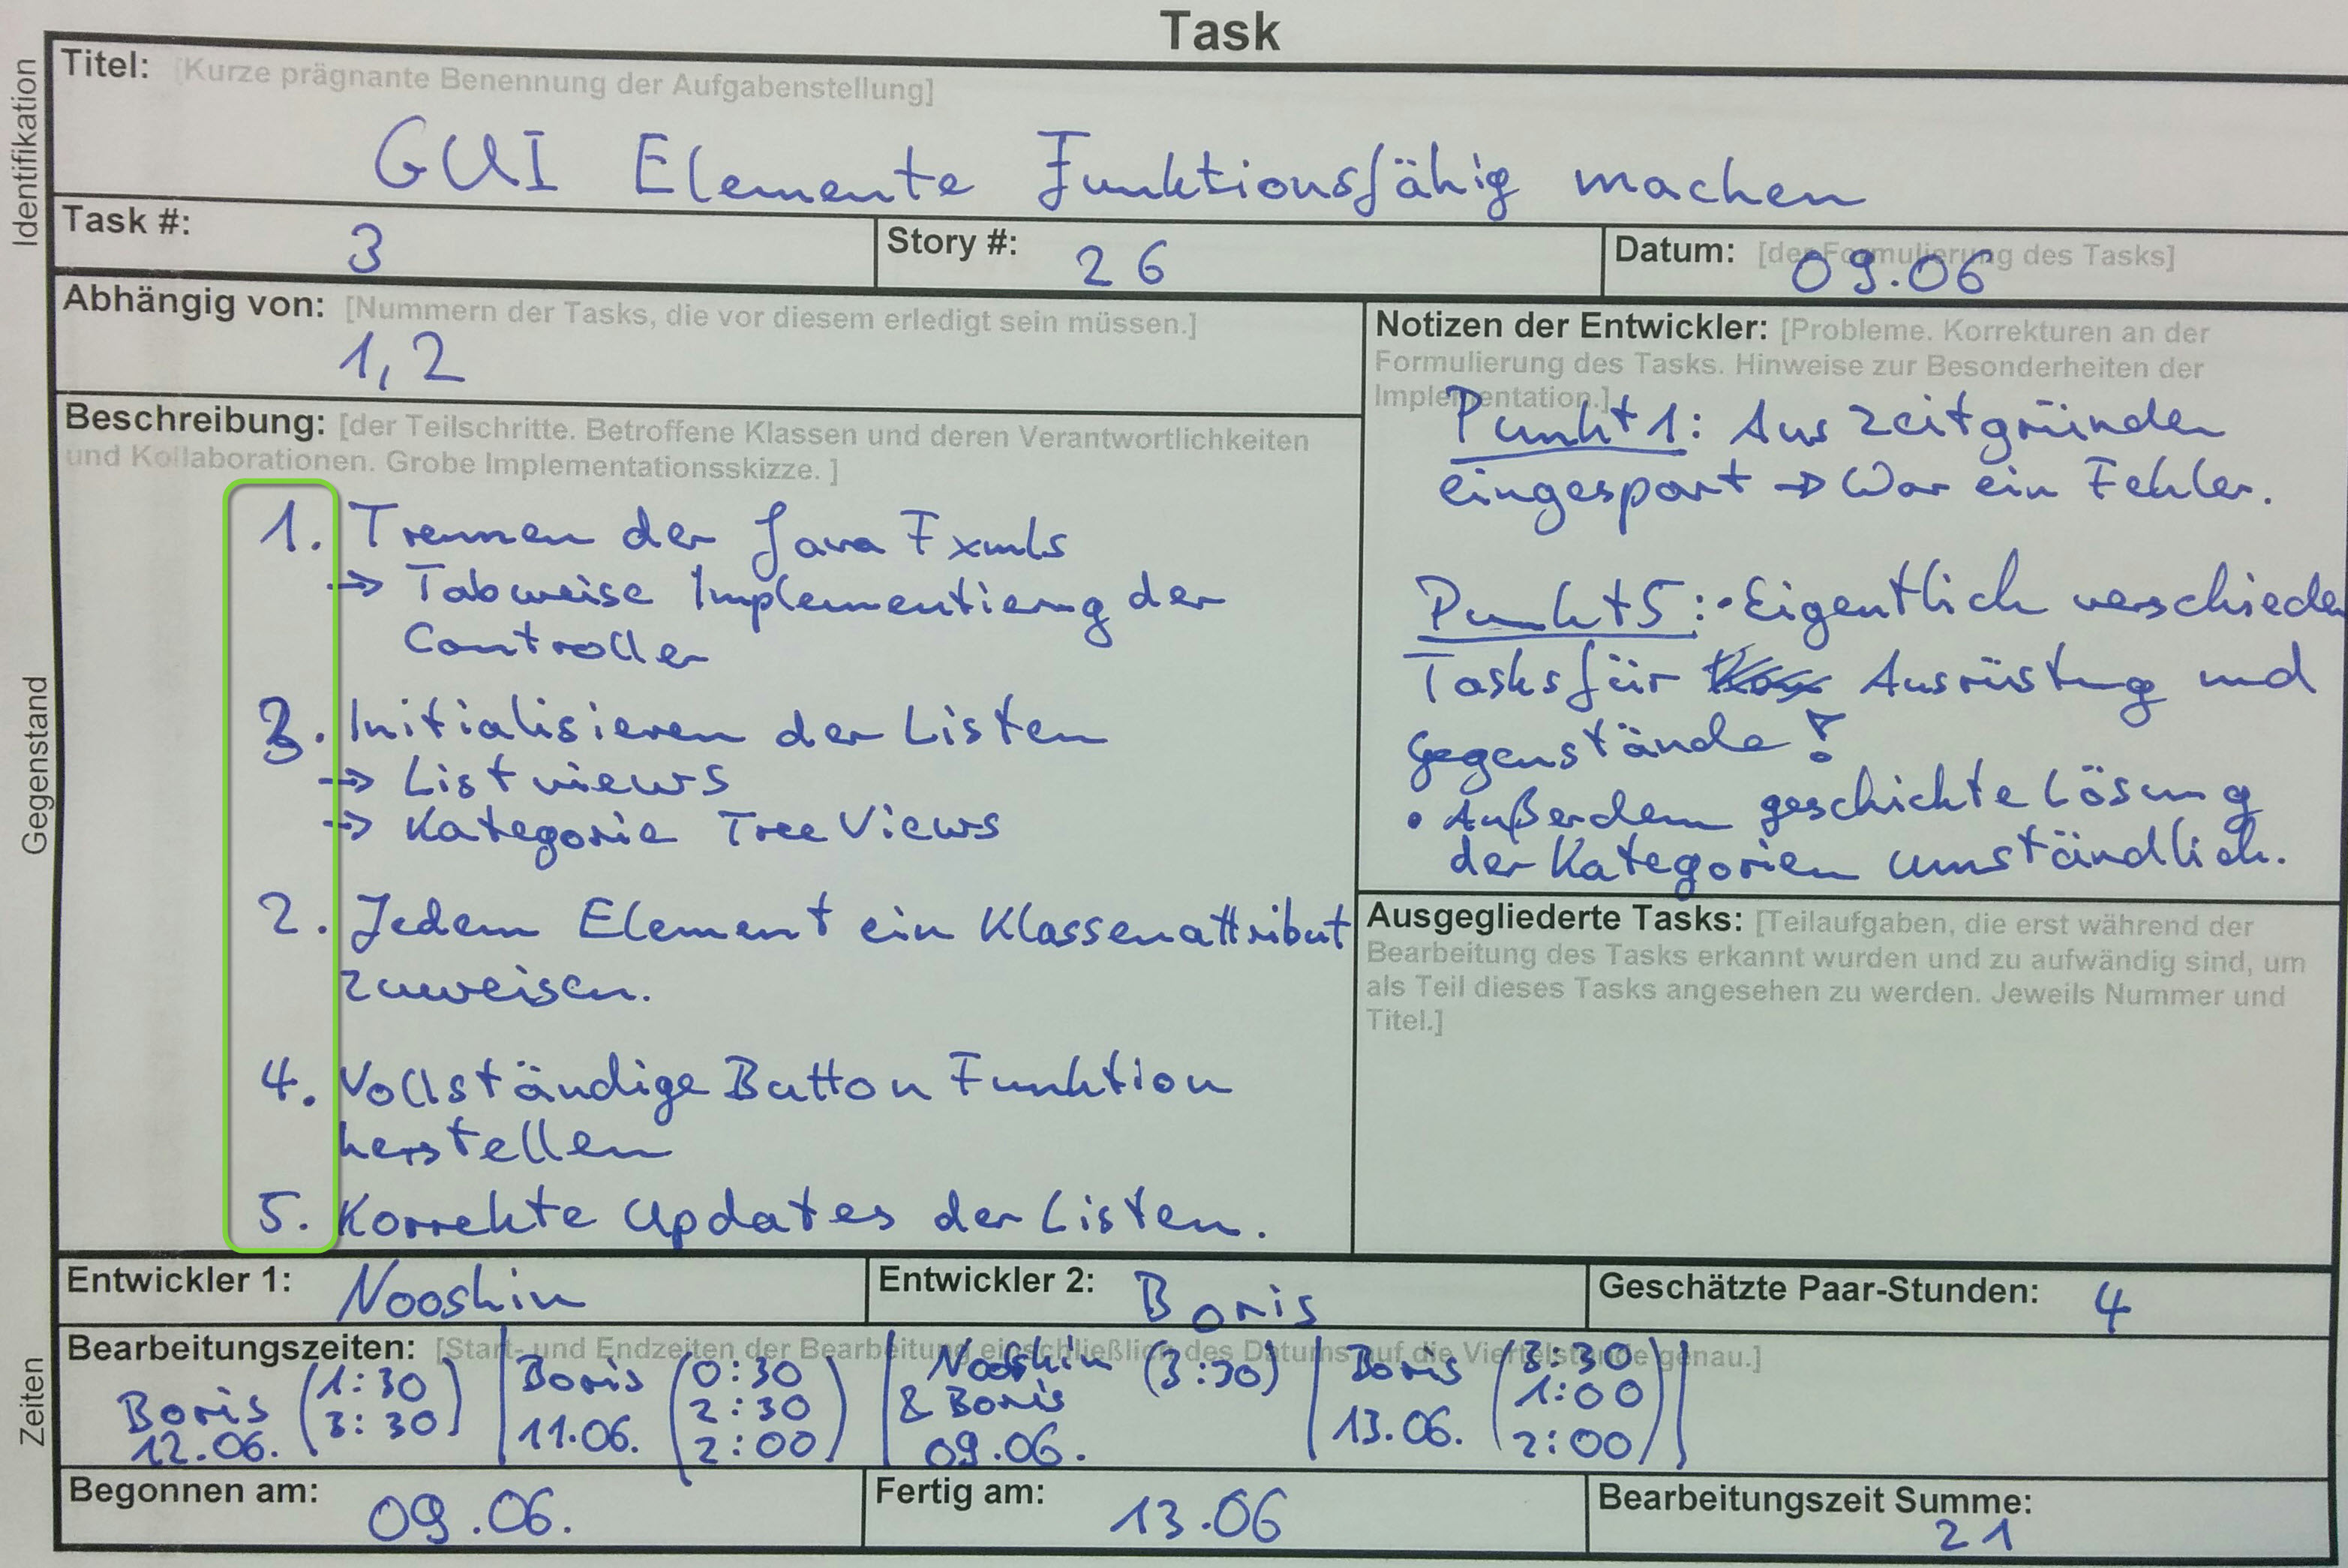 Task
Identifikation
Titel: [Kurze prägnante Benennung der Aufgabenstellung]
GUI Elemente Funktionsfähig machen
Task #: 3
Story #: 26
Datum: [der Formulierung des Tasks]
09.06
Gegenstand
Abhängig von: [Nummern der Tasks, die vor diesem erledigt sein müssen.]
1,2
Beschreibung: [der Teilschritte. Betroffene Klassen und deren Verantwortlichkeiten
und Kollaborationen. Grobe Implementationsskizze. ]
1. Trennen der Java Fxmls
→ Tabweise Implementierng der
Controller
3. Initialisieren der Listen
→ Listviews
→ Kategorie TreeViews
2. Jedem Element ein Klassenattribut
zuweisen.
4. Vollständige Button Funktion
herstellen
5. Korrekte Updates der Listen.
Notizen der Entwickler: [Probleme. Korrekturen an der
Formulierung des Tasks. Hinweise zur Besonderheiten der
Implementation.]
Punkt 1: Aus Zeitgründen
eingespart → War ein Fehler.
Punkt 5: • Eigentlich verschieden
Tasks für Ausrüstung und
Gegenstände!
• Außerdem geschichte Lösung
der Kategorien umständlich.
Ausgegliederte Tasks: [Teilaufgaben, die erst während der
Bearbeitung des Tasks erkannt wurden und zu aufwändig sind, um
als Teil dieses Tasks angesehen zu werden. Jeweils Nummer und
Titel.]
Entwickler 1: Nooshin
Entwickler 2: Boris
Geschätzte Paar-Stunden: 4
Zeiten
Bearbeitungszeiten: [Start- und Endzeiten der Bearbeitung einschließlich des Datums auf die Viertelstunde genau.]
Boris (1:30
3:30)
12.06.
Boris (0:30
2:30
2:00)
11.06.
Nooshin (3:30)
& Boris
09.06.
Boris (3:30
1:00
2:00)
13.06.
Begonnen am: 09.06.
Fertig am: 13.06
Bearbeitungszeit Summe:
21